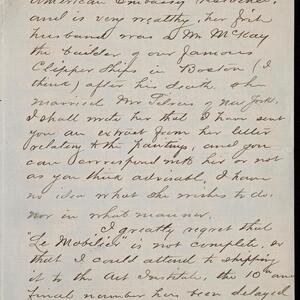 American Embassy
and is very wealthy, her first
husband was a Mr McKay
the builder of our famous
Clipper Ships in Boston (I
think) after his death she
married Mr of New York.
I shall write her that I have sent
you an extract from her letter
relating to the paintings, and you
can correspond with her or not
as you think advisable, I have
no idea what she wishes to do,
nor in what manner.
I greatly regret that
"Le Mobilier" is not complete, so
that I could attend to shipping
it to the Art Institute, the 10th and
final number has been delayed